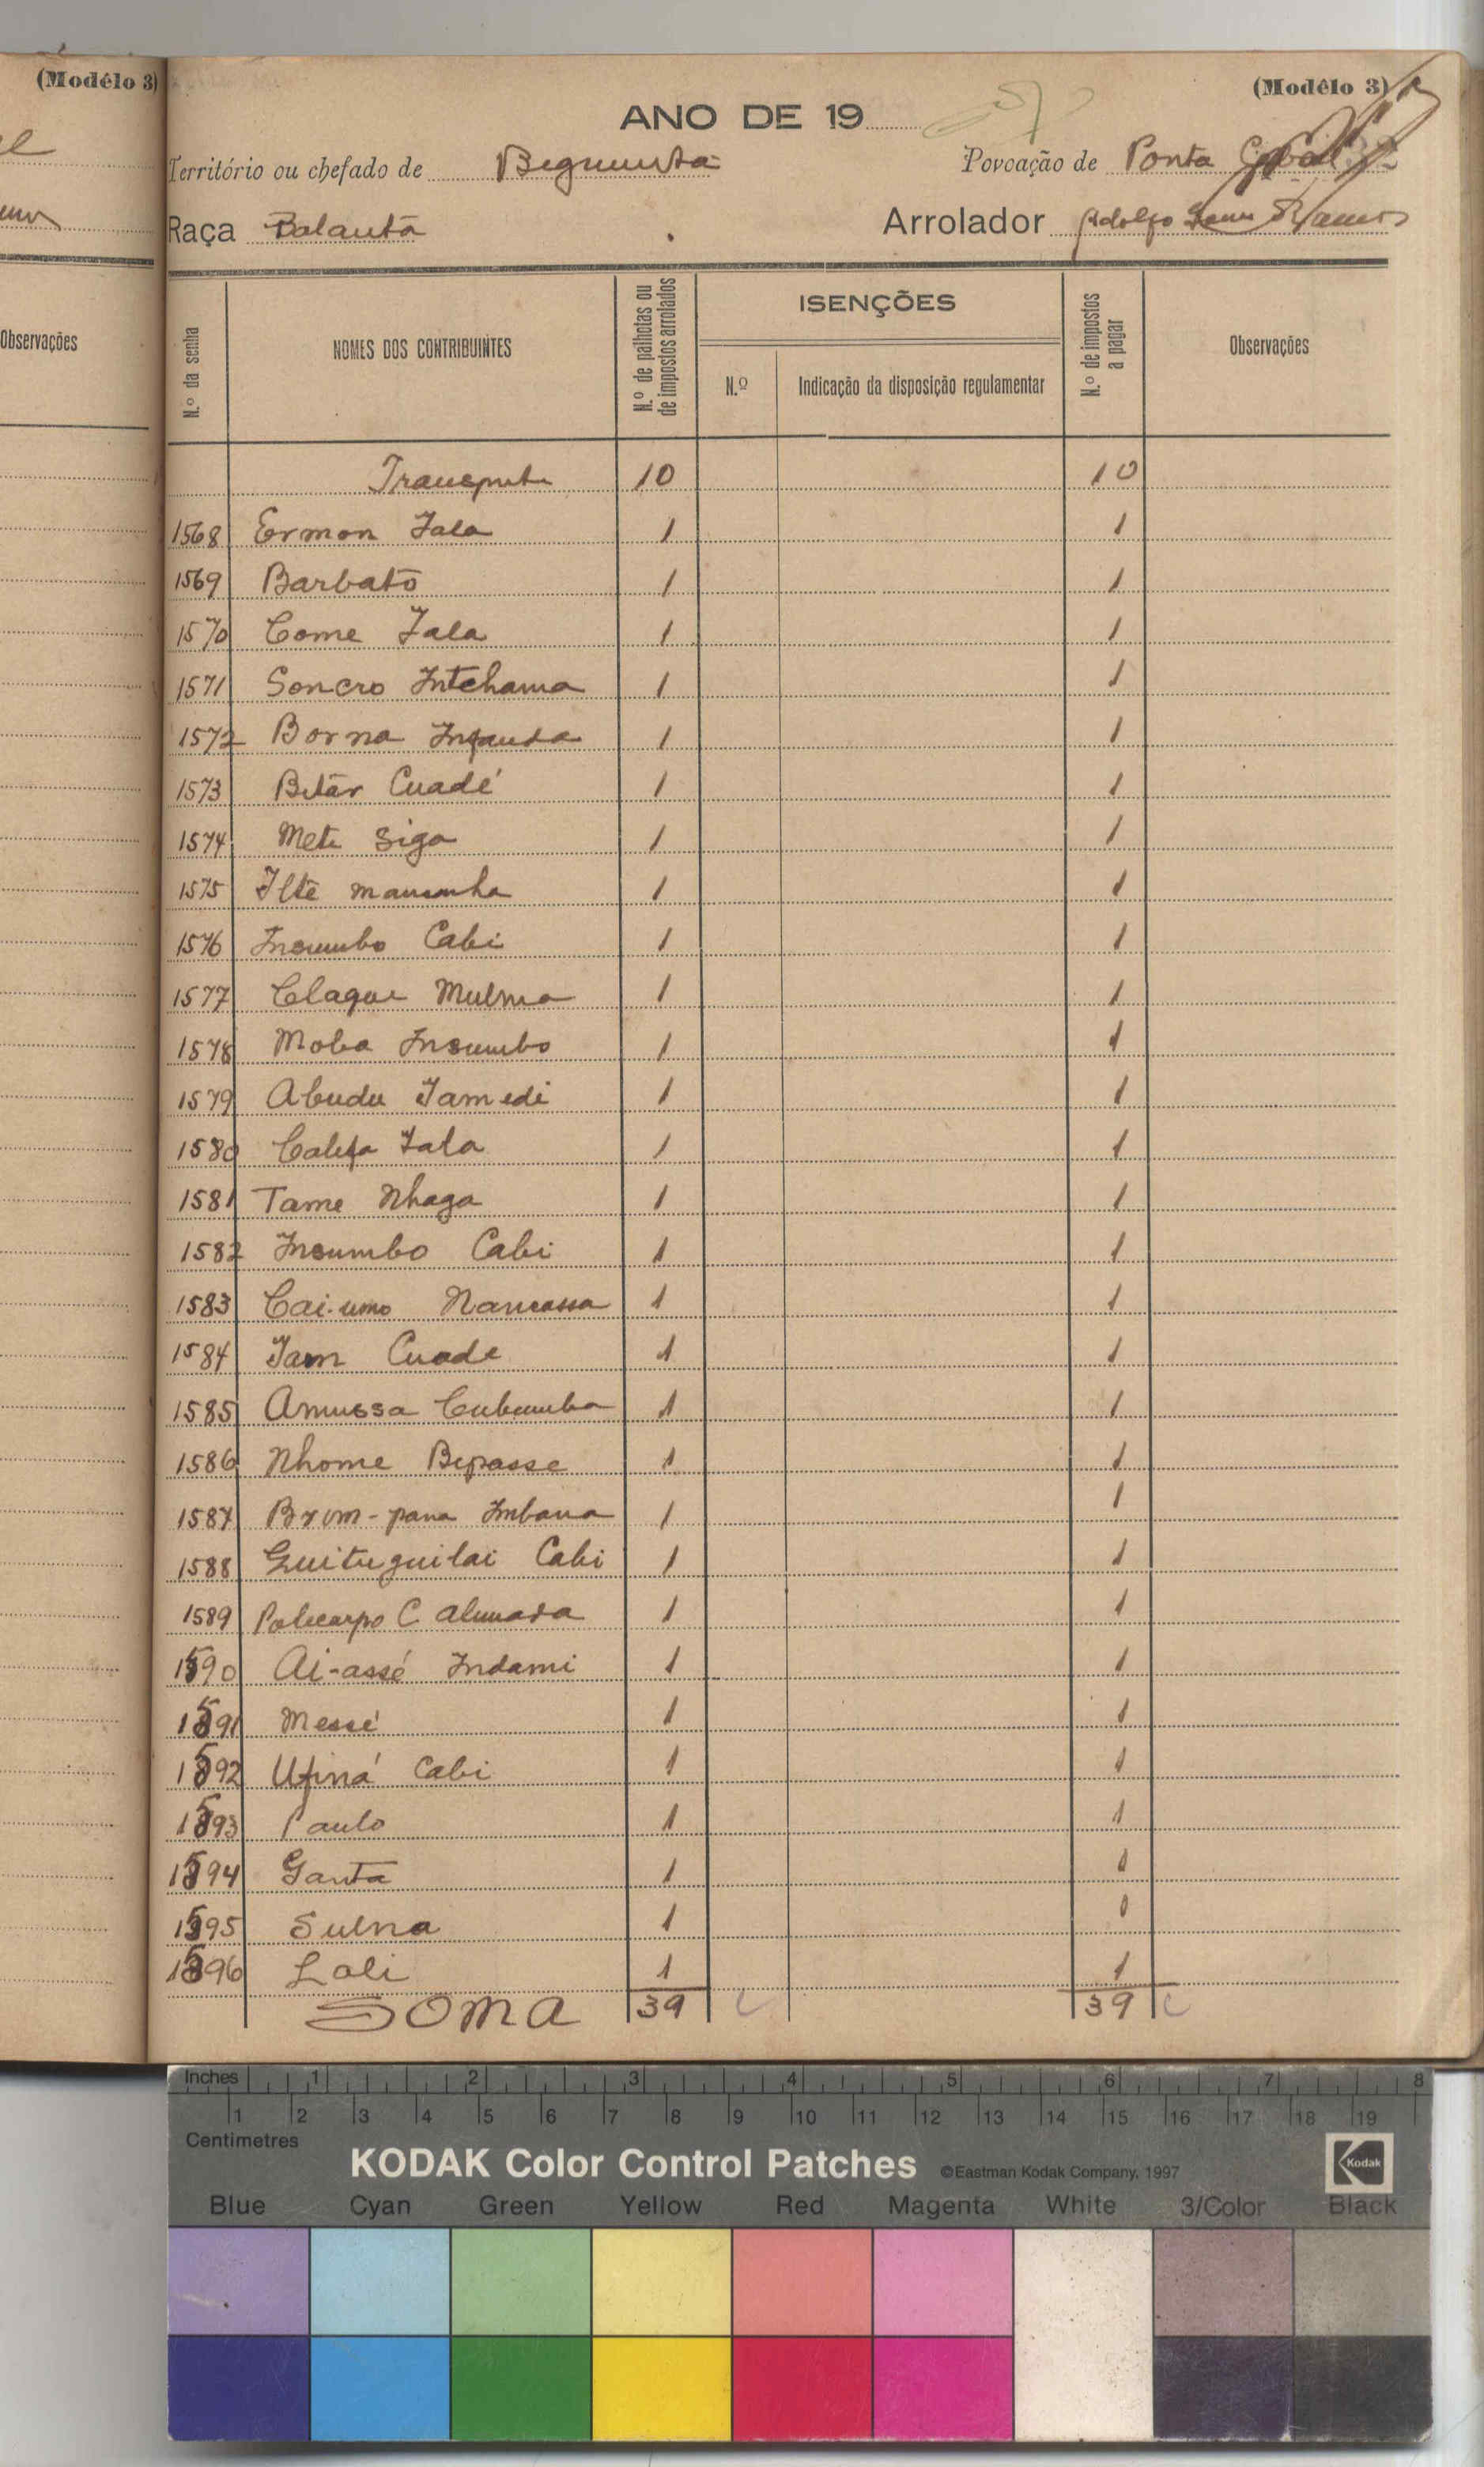 (Modêlo 3)
(Modêlo 3)
ANO DE 19
Território ou chefado de Begumta Povoação de Ponta
Raça Balanta Arrolador Adolfo Ramos
Observações
N.º da senha NOMES DOS CONTRIBUINTES N.º de palhotas ou de impostos arrolados ISENÇÕES N.º de impostos a pagar Observações
N.º Indicação da disposição regulamentar
Transporte 10 10
1568 Ermon Jala 1 1
1569 Barbato 1 1
1570 Come Jala 1 1
1571 Soncro Intchama 1 1
1572 Borna 1 1
1573 Bitar Cuadé 1 1
1574 Mete Siga 1 1
1575 Ilte mansonha 1 1
1576 Insumbo Cabi 1 1
1577 Claque Mulma 1 1
1578 Moba Insumbo 1 1
1579 Abudu Jamedi 1 1
1580 Calefa Jala 1 1
1581 Tame Nhaga 1 1
1582 Insumbo Cabi 1 1
1583 Cai-umo Nancassa 1 1
1584 Jam Cuade 1 1
1585 Amussa Cubumba 1 1
1586 Nhome Bepasse 1 1
1587 Brom-pana Imbana 1 1
1588 Guituguilai Cabi 1 1
1589 Policarpo C Almada 1 1
1590 Ai-assé Indami 1 1
1591 Messé 1 1
1592 Ufiná Cabi 1 1
1593 Paulo 1 1
1594 Ganta 1 1
1595 Sulna 1 1
1596 Lali 1 1
SOMA 39 39
Inches 1 2 3 4 5 6 7 8
1 2 3 4 5 6 7 8 9 10 11 12 13 14 15 16 17 18 19
Centimetres
KODAK Color Control Patches ©Eastman Kodak Company, 1997 Kodak
Blue Cyan Green Yellow Red Magenta White 3/Color Black